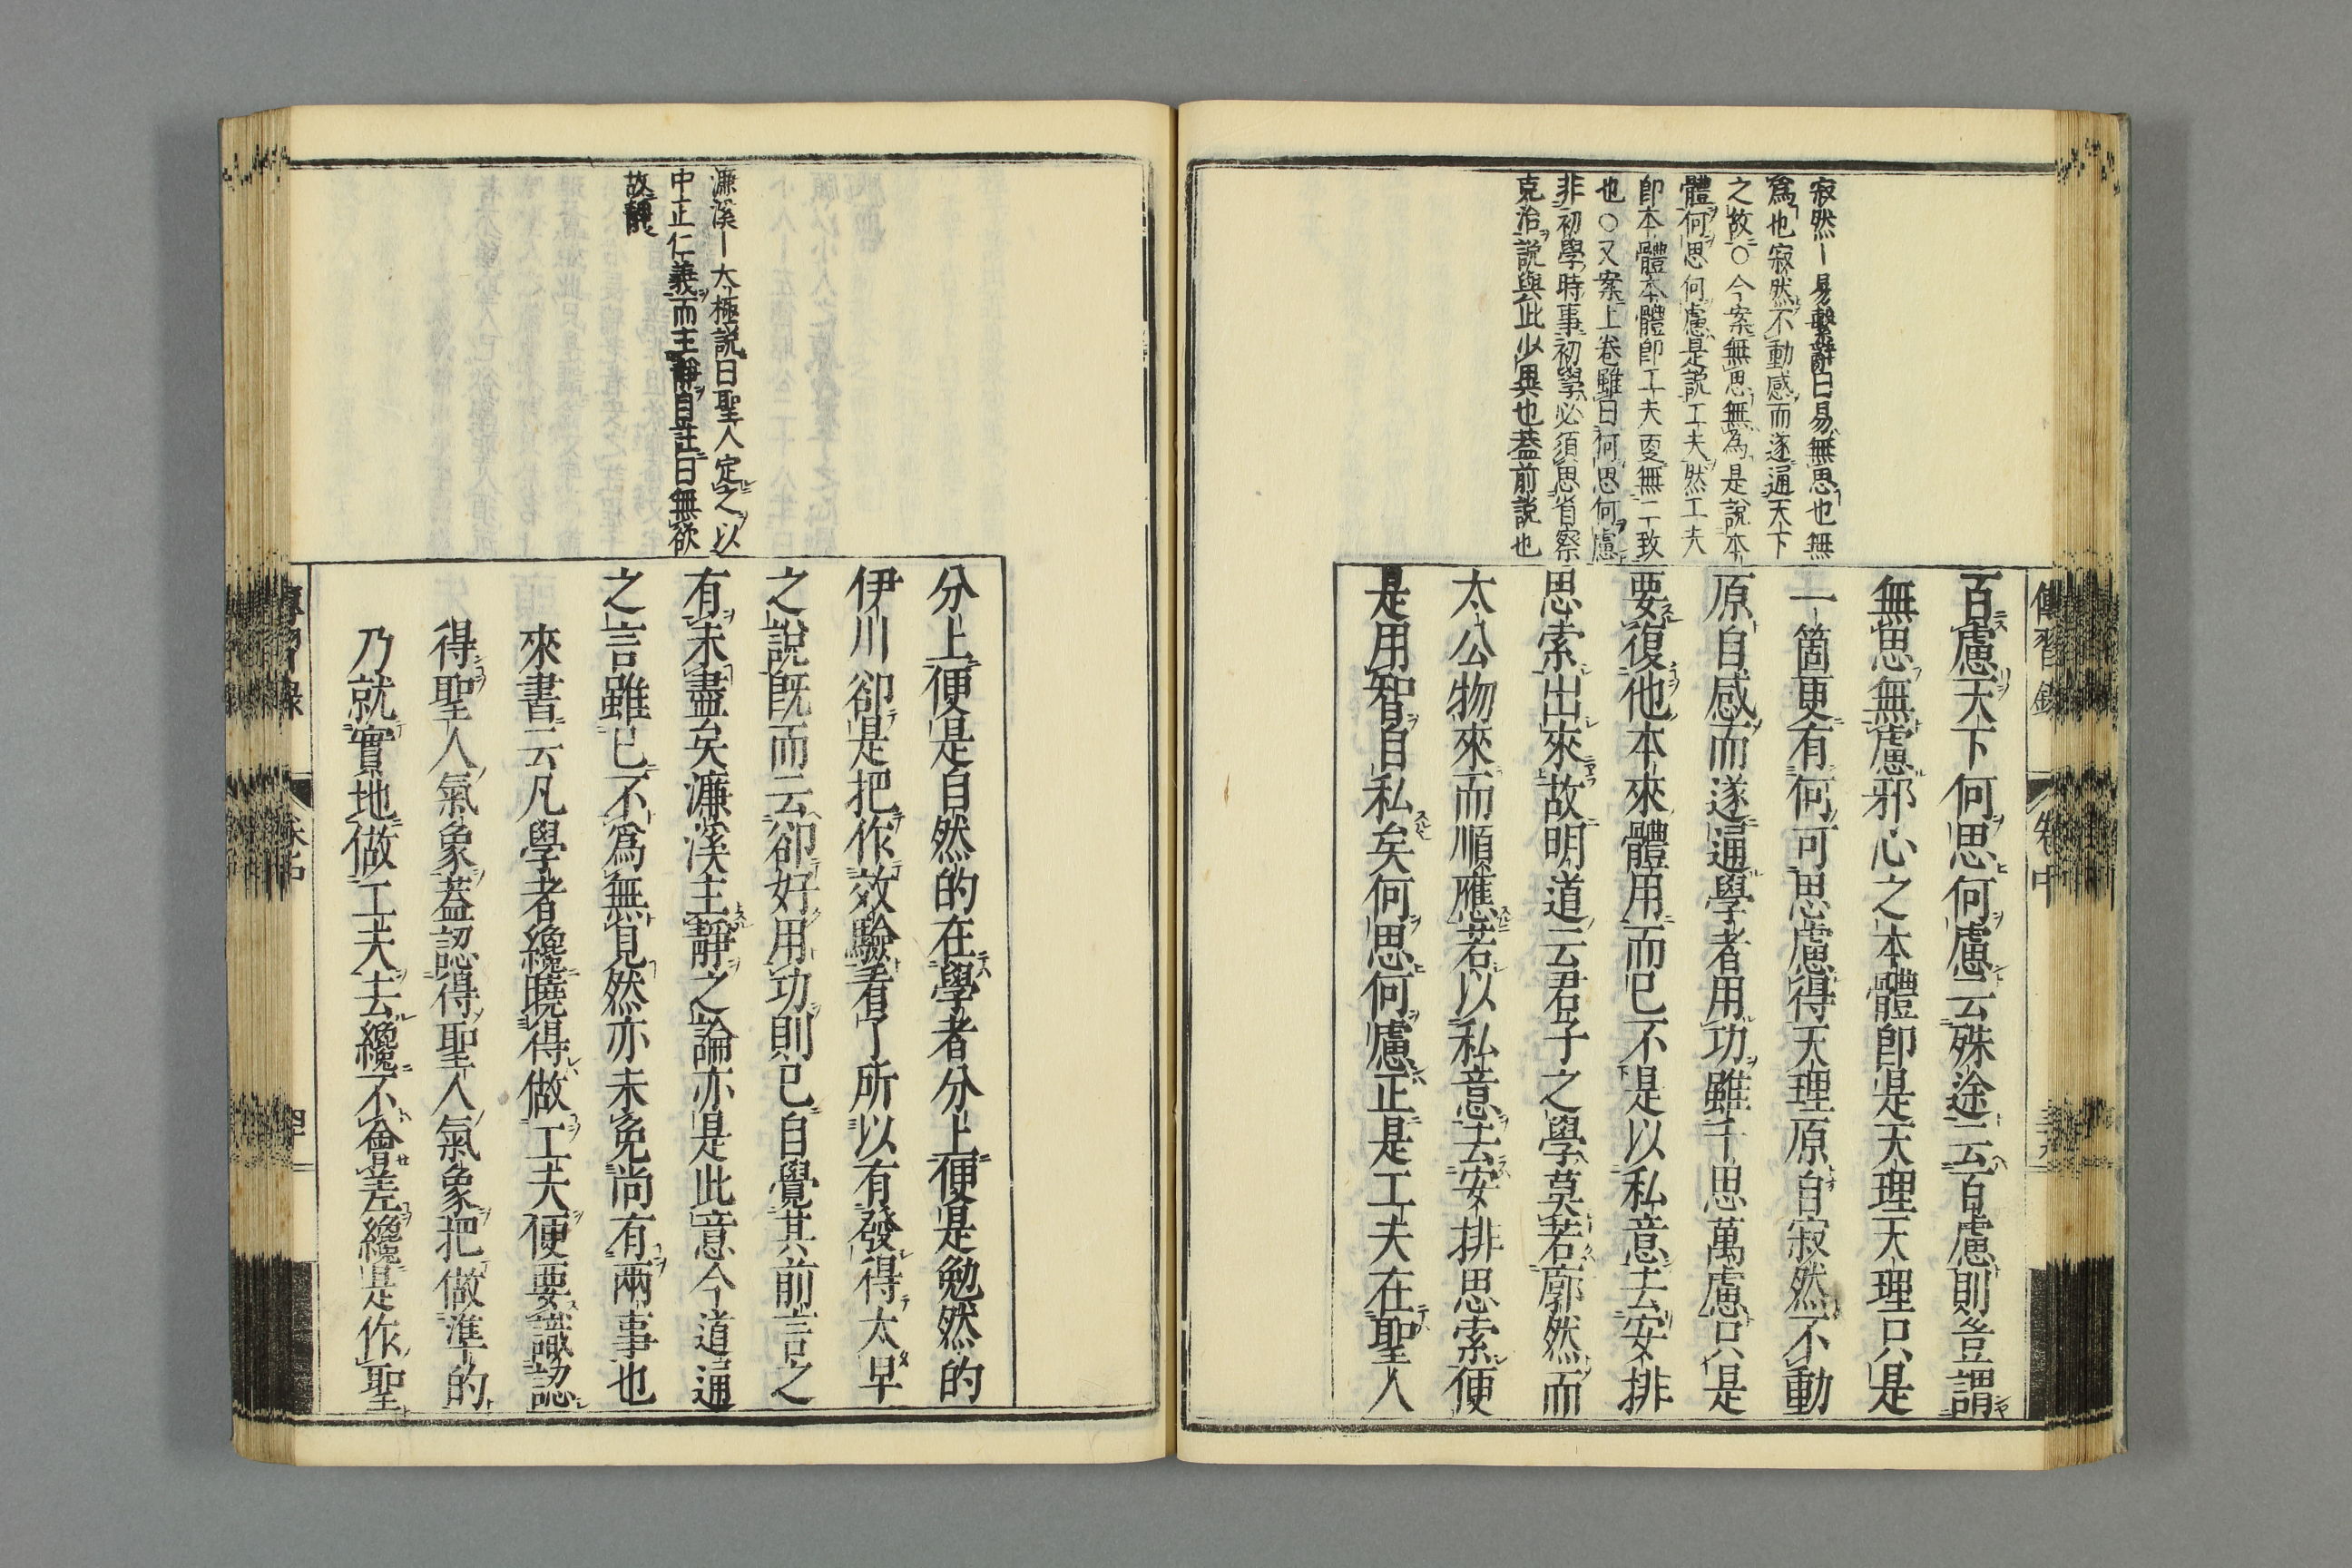 寂然―易繫辭曰易無思也無
爲也寂然不動感而遂通天下
之故○今案無思無為是說本
體何思何慮是説工夫然工夫
卽本體本體卽工夫更無二致
也○又案上卷雖曰何思何慮
非初學時事初學必須思省察
克治説與此少異也蓋前説也
傳習錄
卷中
百慮天下何思何慮云殊途云百慮則豈謂
無思無慮邪心之本體卽是天理天理只是
一箇更有何可思慮得天理原自寂然不動
原自感而遂通學者用功雖千思萬慮只是
要復他本來體用而已不是以私意去安排
思索出來故明道云君子之學莫若廓然而
太公物來而順應若以私意去安排思索便
是用智自私矣何思何慮正是工夫在聖人
濂溪―太極説曰聖人定之以
中正仁義而主靜自註曰無欲
故靜
分上便是自然的在學者分上便是勉然的
伊川卻是把作效驗看了所以有發得太早
之說旣而云卻好用功則已自覺其前言之
有未盡矣濂溪主靜之論亦是此意今道通
之言雖已不爲無見然亦未免尚有兩事也
來書云凡學者纔曉得做工夫便要識認
得聖人氣象蓋認得聖人氣象把做準的
乃就實地做工夫去纔不會差纔是作聖